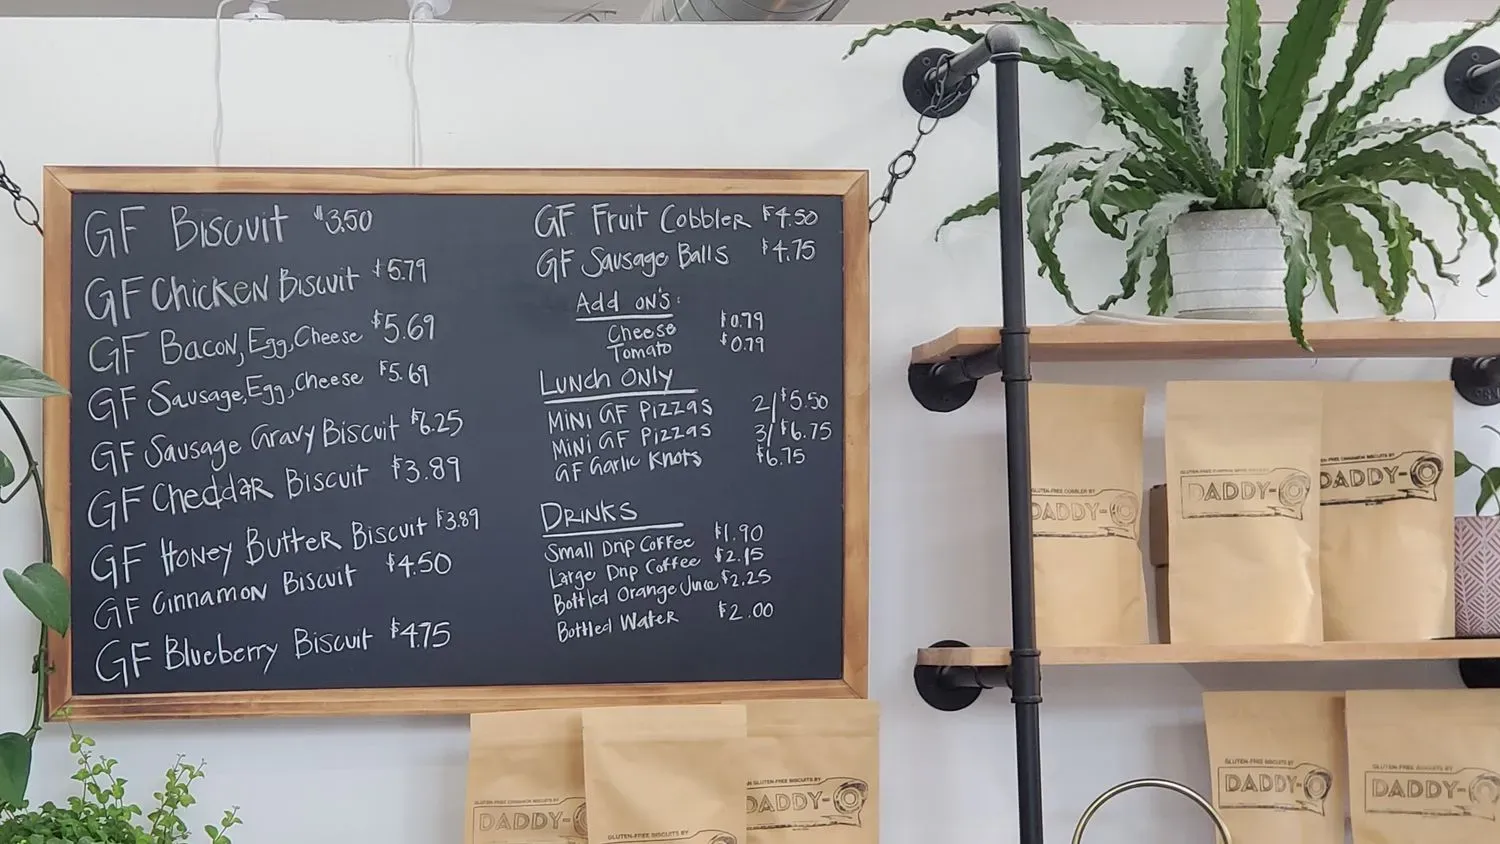 GF Biscuit $3.50
GF Chicken Biscuit $5.79
GF Bacon, Egg, Cheese $5.69
GF Sausage, Egg, Cheese $5.69
GF Sausage Gravy Biscuit $6.25
GF Cheddar Biscuit $3.89
GF Honey Butter Biscuit $3.89
GF Cinnamon Biscuit $4.50
GF Blueberry Biscuit $4.75
GF Fruit Cobbler $4.50
GF Sausage Balls $4.75
Add on's:
Cheese $0.79
Tomato $0.79
Lunch Only
Mini GF Pizzas 2/$5.50
Mini GF Pizzas 3/$6.75
GF Garlic Knots $6.75
Drinks
Small Drip Coffee $1.90
Large Drip Coffee $2.15
Bottled Orange Juice $2.25
Bottled Water $2.00
GLUTEN-FREE COBBLER BY
DADDY-O
DADDY-O
GLUTEN-FREE CINNAMON BISCUITS BY
DADDY-O
GLUTEN-FREE CINNAMON BISCUITS BY
DADDY-O
GLUTEN-FREE BISCUITS BY
GLUTEN-FREE BISCUITS BY
DADDY-O
GLUTEN-FREE BISCUITS BY
DADDY-O
GLUTEN-FREE BISCUITS BY
DADDY-O